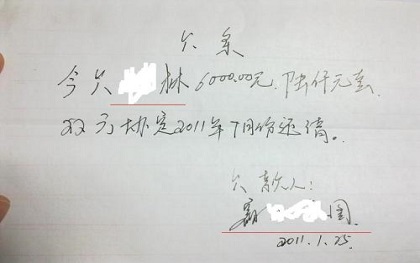 欠条
今欠 林6000.00元,陆仟元整
双方协定2011年7月份还清。
欠款人:
国
2011.1.25